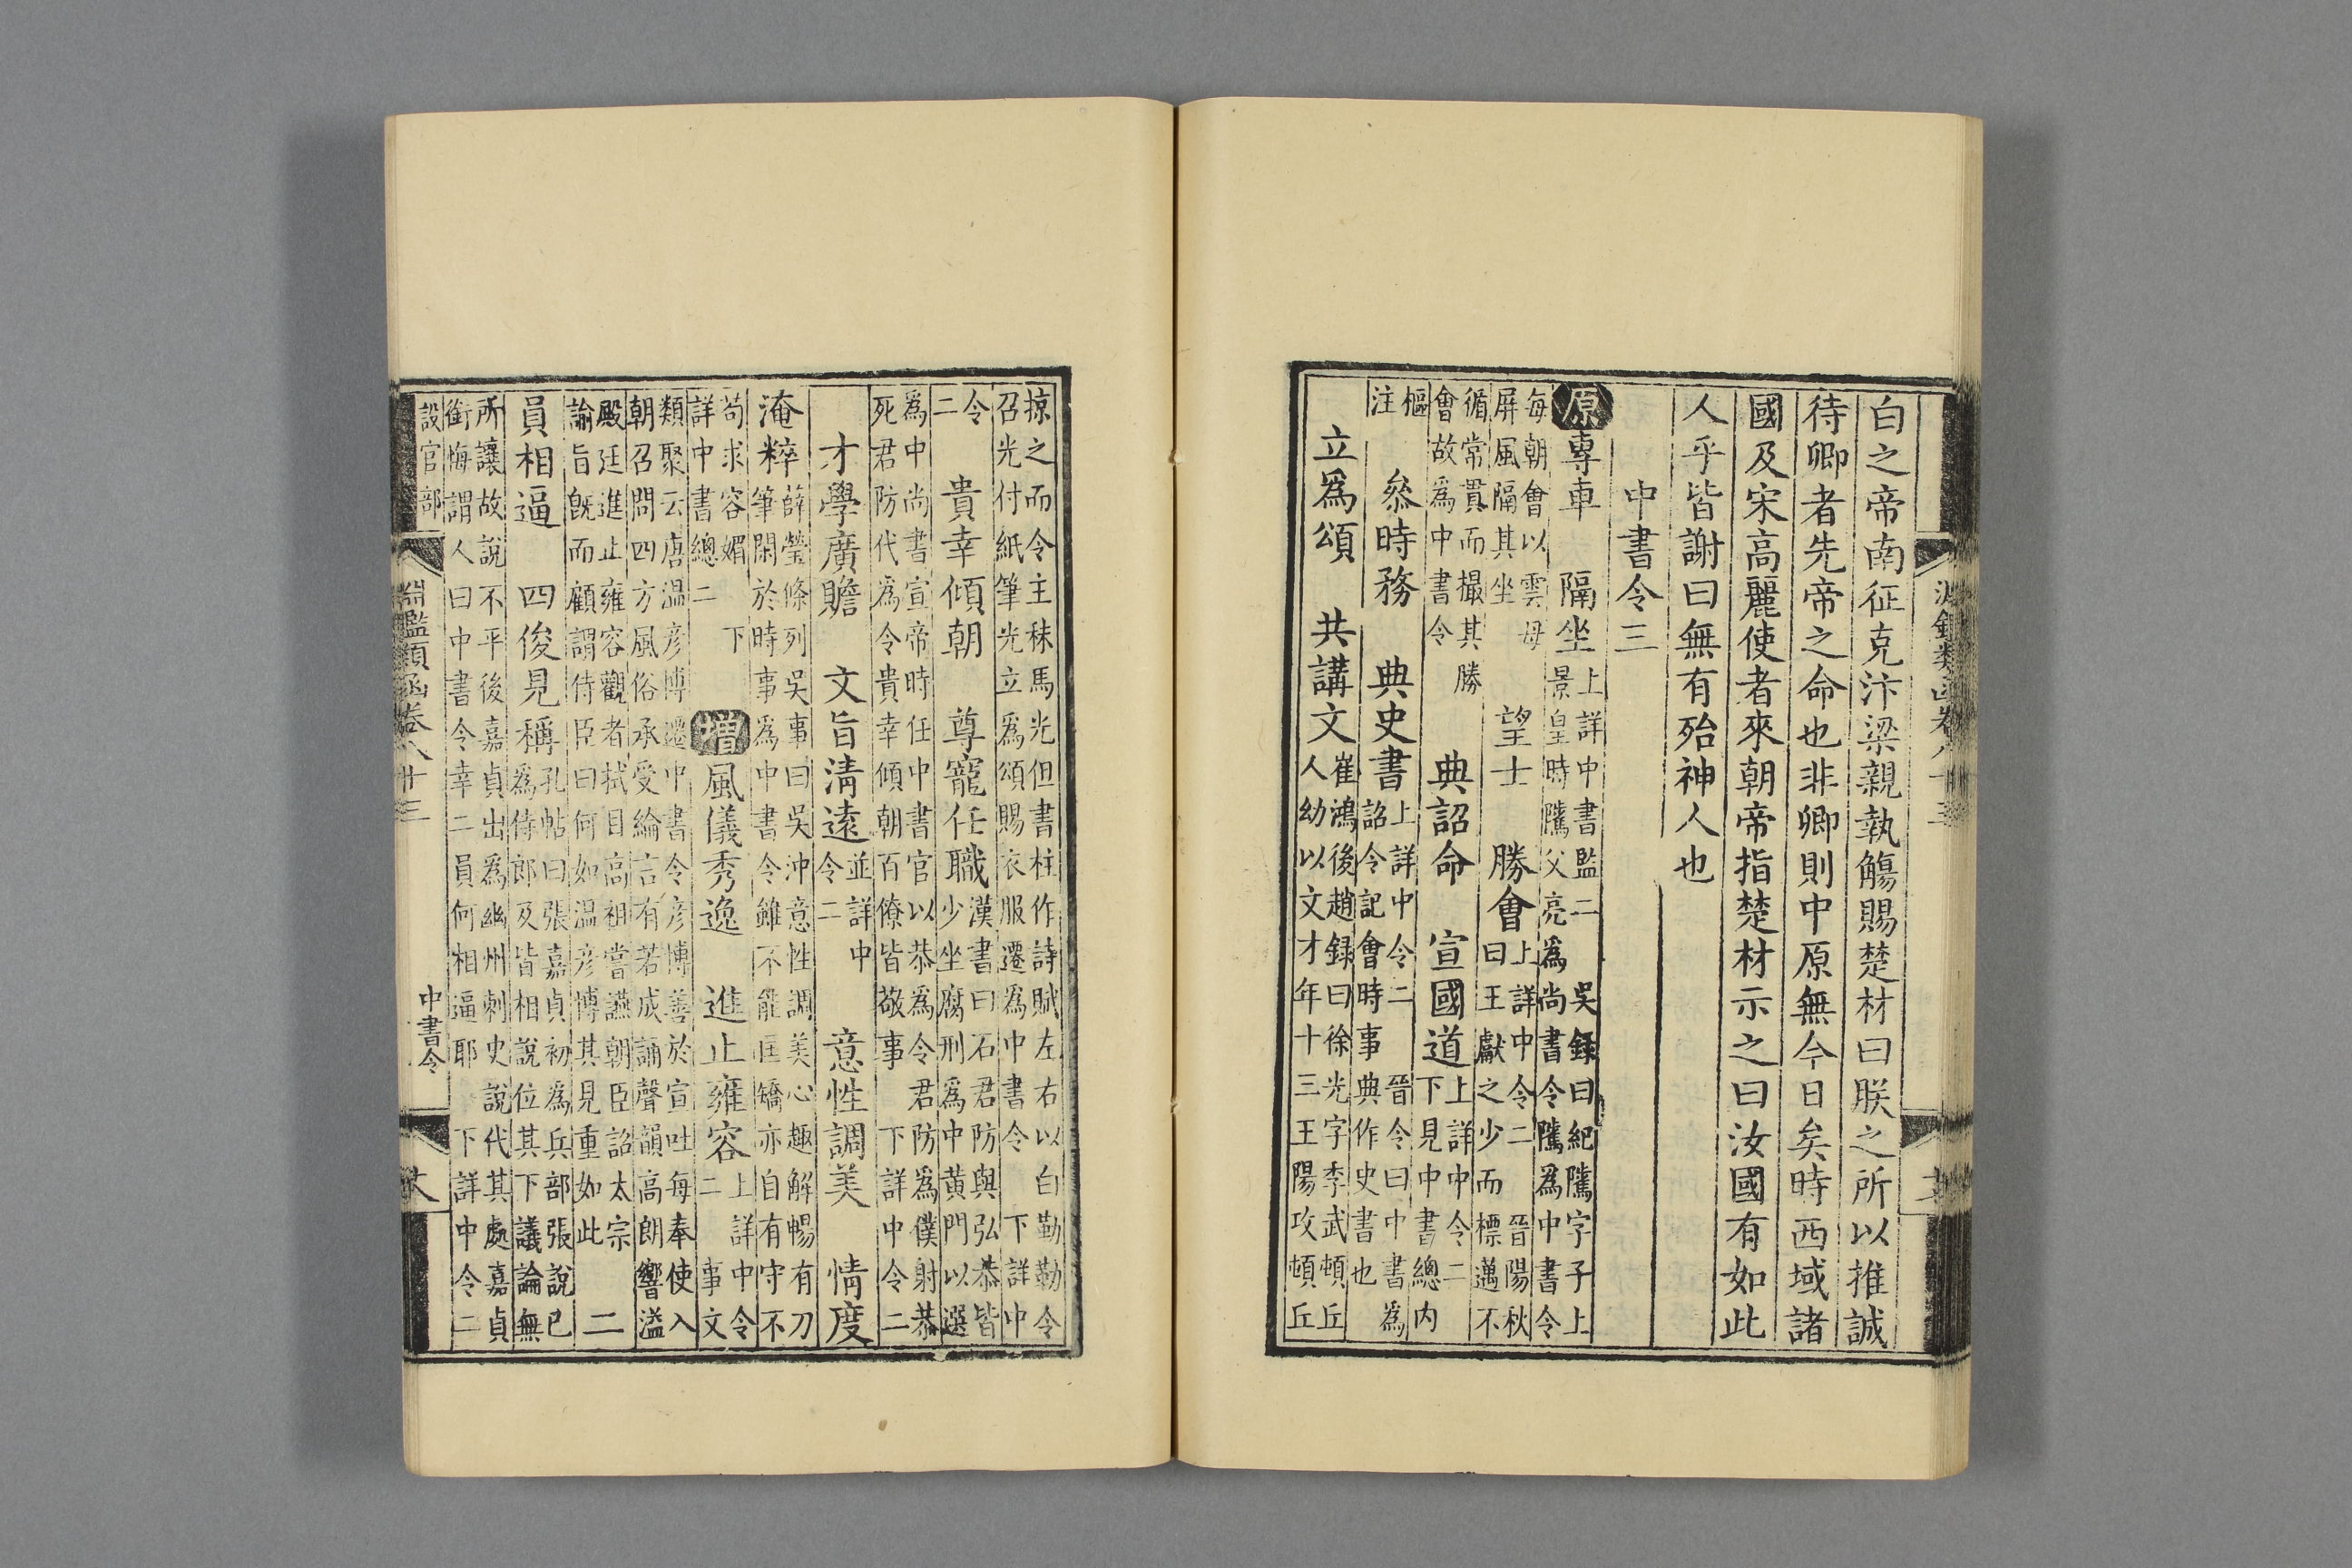 白之帝南征克汴梁親執觴賜楚材曰朕之所以推誠
待卿者先帝之命也非卿則中原無今日矣時西域諸
國及宋高麗使者來朝帝指楚材示之曰汝國有如此
人乎皆謝曰無有殆神人也
中書令三
原專車 隔坐上詳中書監二 吳録曰紀隲字子上
景皇時隲父亮爲尚書令隲爲中書令
每朝會以雲母
屏風隔其坐 望士 勝會上詳中令二 晉陽秋
曰王獻之少而標邁不
循常貫而撮其勝
會故爲中書令 典詔命 宣國道上詳中令二
下見中書總内
樞
注 叅時務 典史書上詳中令二 晉令曰中書爲
詔令記會時事典作史書也
立爲頌 共講文崔鴻後趙録曰徐光字季武頓丘
人幼以文才年十三王陽攻頓丘
掠之而令主秣馬光但書柱作詩賦左右以白勒勒令
召光付紙筆光立爲頌賜衣服遷爲中書令 下詳中
令
二 貴幸傾朝 尊寵任職漢書曰石君防與弘恭皆
少坐腐刑爲中黄門以選
爲中尚書宣帝時任中書官以恭爲令君防爲僕射恭
死君防代爲令貴幸傾朝百僚皆敬事 下詳中令二
才學廣贍 文旨清遠並詳中
令二 意性調美 情度
淹粹薛瑩條列吳事曰吳沖意性調美心趣解暢有刀
筆閑於時事爲中書令雖不能匡矯亦自有守不
苟求容媚 下
詳中書總二 增風儀秀逸 進止雍容上詳中令
二 事文
類聚云唐温彦博遷中書令彦博善於宣吐每奉使入
朝召問四方風俗承受綸言有若成誦聲韻高朗響溢
殿廷進止雍容觀者拭目高祖嘗讌朝臣詔太宗
諭旨旣而顧謂侍臣曰何如温彦博其見重如此 二
員相逼 四俊見稱孔帖曰張嘉貞初爲兵部張說已
爲侍郎及皆相說位其下議論無
所讓故說不平後嘉貞出爲幽州刺史說代其處嘉貞
銜悔謂人曰中書令幸二員何相逼耶 下詳中令二
設官部
淵鑑類函卷八十三
中書令